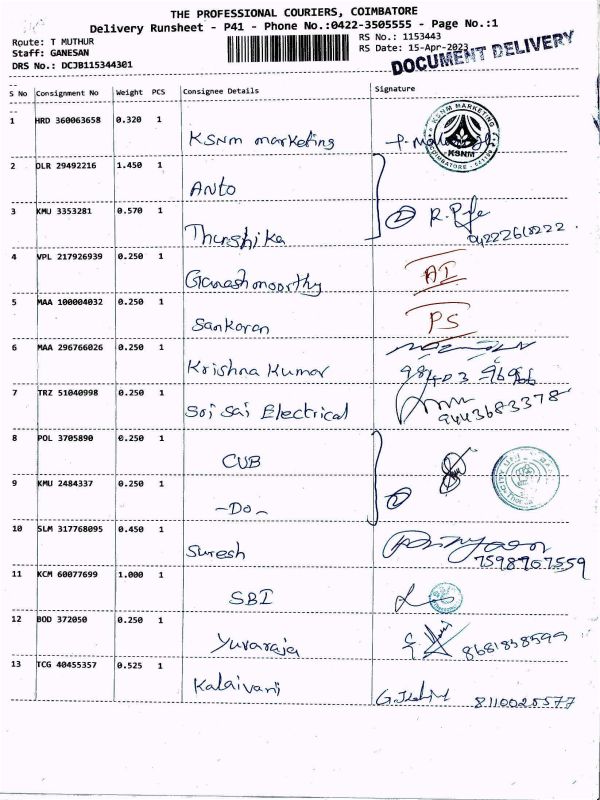 THE PROFESSIONAL COURIERS, COIMBATORE
Delivery Runsheet - P41 - Phone No.:0422-3505555 - Page No.:1
Route: T MUTHUR
Staff: GANESAN
DRS No.: DCJB115344301
RS No.: 1153443
RS Date: 15-Apr-2023
DOCUMENT DELIVERY
S No Consignment No Weight PCS Consignee Details Signature
1 HRD 360063658 0.320 1 KSNM marketing
KSNM MARKETING
KSNM
COIMBATORE
2 DLR 29492216 1.450 1 Anto
3 KMU 3353281 0.570 1 Tharshika
② 04222610222
4 VPL 217926939 0.250 1 Ganashmoorthy AI
5 MAA 100004032 0.250 1 Sankaran PS
6 MAA 296766026 0.250 1 Krishna Kumar
7 TRZ 51040998 0.250 1 Sri Sai Electrical 9443683378
8 POL 3705890 0.250 1 CUB
9 KMU 2484337 0.250 1 -Do-
②
10 SLM 317768095 0.450 1 Suresh 7598707559
11 KCM 60077699 1.000 1 SBI
12 BOD 372050 0.250 1 Yuvaraja 8681838599
13 TCG 40455357 0.525 1 Kalaivani 8110025577